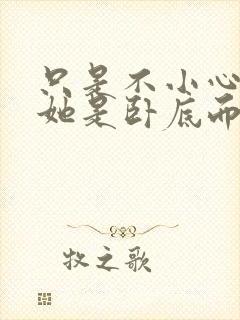 只是不小心
她是卧底而
牧之歌